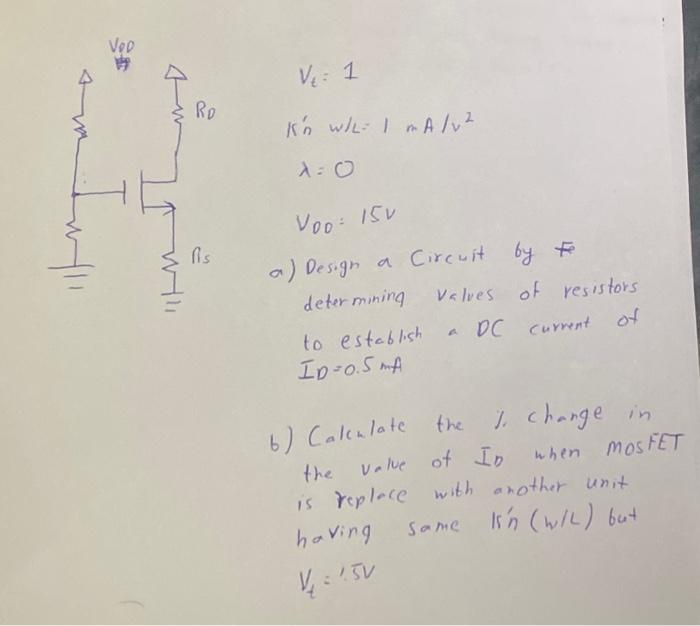 VDD
RD
RS
Vt = 1
k'n W/L = 1 mA/V²
λ = 0
VDD = 15V
a) Design a Circuit by
determining values of resistors
to establish a DC current of
ID = 0.5 mA
b) Calculate the % change in
the value of ID when MOSFET
is replace with another unit
having same k'n (W/L) but
Vt = 1.5V